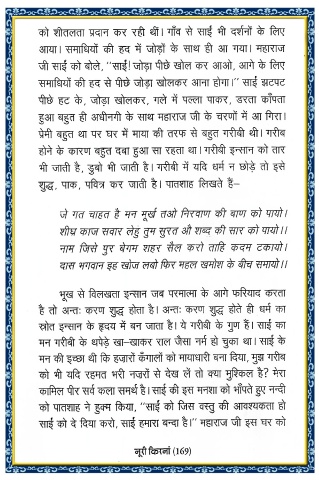 को शीतलता प्रदान कर रही थीं। गाँव से साईं भी दर्शनों के लिए
आया। समाधियों की हद में जोड़ों के साथ ही आ गया। महाराज
जी साईं को बोले, ‘‘साईं! जोड़ा पीछे खोल कर आओ, आगे के लिए
समाधियों की हद से पीछे जोड़ा खोलकर आना होगा।’’ साईं झटपट
पीछे हट के, जोड़ा खोलकर, गले में पल्ला पाकर, डरता काँपता
हुआ बहुत ही अधीनगी के साथ महाराज जी के चरणों में आ गिरा।
प्रेमी बहुत था पर घर में माया की तरफ से बहुत गरीबी थी। गरीब
होने के कारण बहुत दबा हुआ सा रहता था। गरीबी इन्सान को तार
भी जाती है, डुबो भी जाती है। गरीबी में यदि धर्म न छोड़े तो इसे
शुद्ध, पाक, पवित्र कर जाती है। पातशाह लिखते हैं–
जे गत चाहत है मन मूर्ख तओ निरवाण की बाण को पायो।
शीघ्र काज सवार लेहु तुम सुरत औ शब्द की सार को पायो।।
नाम जिसे पुर बेगम शहर सैल करो ताहि कदम टकायो।
दास भगवान इह खोज लबो फिर महल खमोश के बीच समायो।।
भूख से विलखता इन्सान जब परमात्मा के आगे फरियाद करता
है तो अन्तः करण शुद्ध होता है। अन्तः करण शुद्ध होते ही धर्म का
स्रोत इन्सान के हृदय में बन जाता है। ये गरीबी के गुण हैं। साईं का
मन गरीबी के थपेड़े खा-खाकर राल जैसा नर्म हो चुका था। साईं के
मन की इच्छा थी कि हजारों कँगालों को मायाधारी बना दिया, मुझ गरीब
को भी यदि रहमत भरी नजरों से देख लें तो क्या मुश्किल है? मेरा
कामिल पीर सर्व कला समर्थ है। साईं की इस मनशा को भाँपते हुए नन्दी
को पातशाह ने हुक्म किया, ‘‘साईं को जिस वस्तु की आवश्यकता हो
साईं को दे दिया करो, साईं हमारा बन्दा है।’’ महाराज जी इस घर को
नूरी किरनां (169)